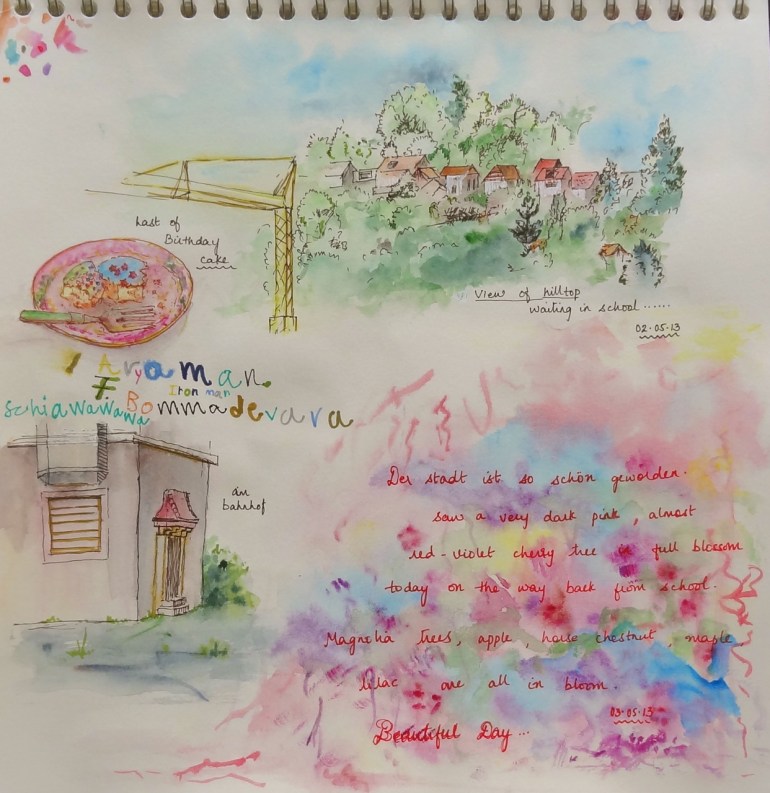 Last of
Birthday
cake
View of hilltop
waiting in school......
02-05-13
Aryaman.
Iron man
F. Bommadevara
schiawawawa
wa
am
bahnhof
Der stadt ist so schön geworden.
saw a very dark pink, almost
red-violet cherry tree in full blossom
today on the way back from school.
Magnolia trees, apple, horse chestnut, maple
lilac are all in bloom.
03-05-13
Beautiful Day...